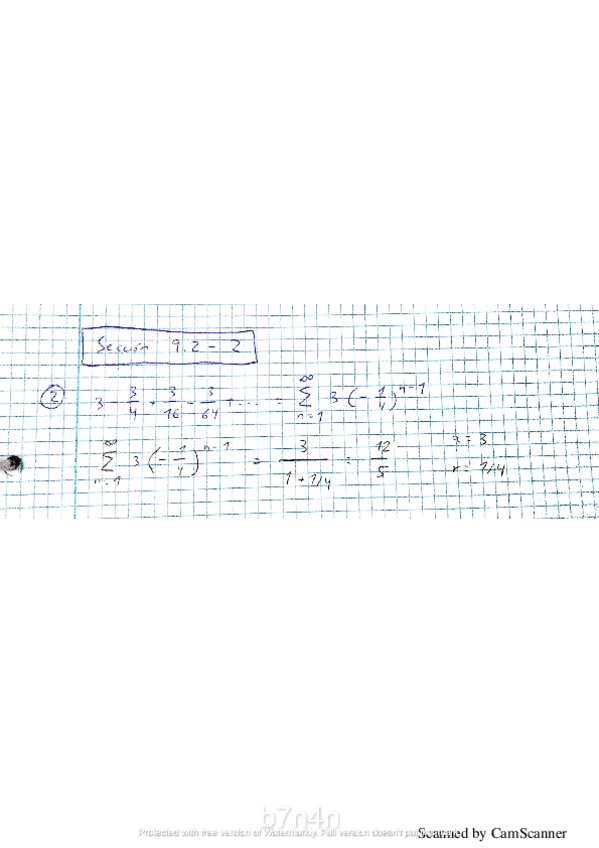 Sección 9.2 - 2
② 3 - 3/4 + 3/16 - 3/64 + ... = ∑_{n=1}^{∞} 3 (- 1/4)^{n-1}
∑_{n=1}^{∞} 3 (- 1/4)^{n-1} = 3/(1 + 1/4) = 12/5
a = 3
r = 1/4
b7n4n
Protected with free version of Watermarkly. Full version doesn't put
Scanned by CamScanner